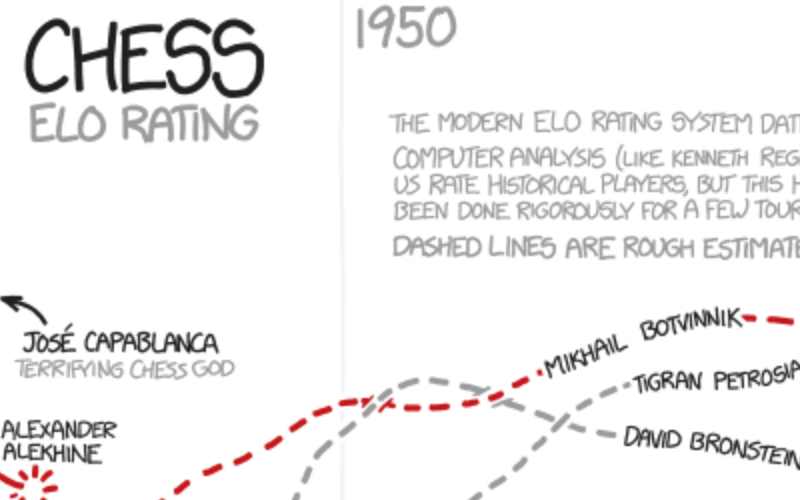 CHESS
ELO RATING
1950
THE MODERN ELO RATING SYSTEM
COMPUTER ANALYSIS (LIKE KENNETH
US RATE HISTORICAL PLAYERS, BUT THIS
BEEN DONE RIGOROUSLY FOR A FEW
DASHED LINES ARE ROUGH
JOSÉ CAPABLANCA
TERRIFYING CHESS GOD
ALEXANDER
ALEKHINE
MIKHAIL BOTVINNIK
TIGRAN
DAVID BRONSTEIN